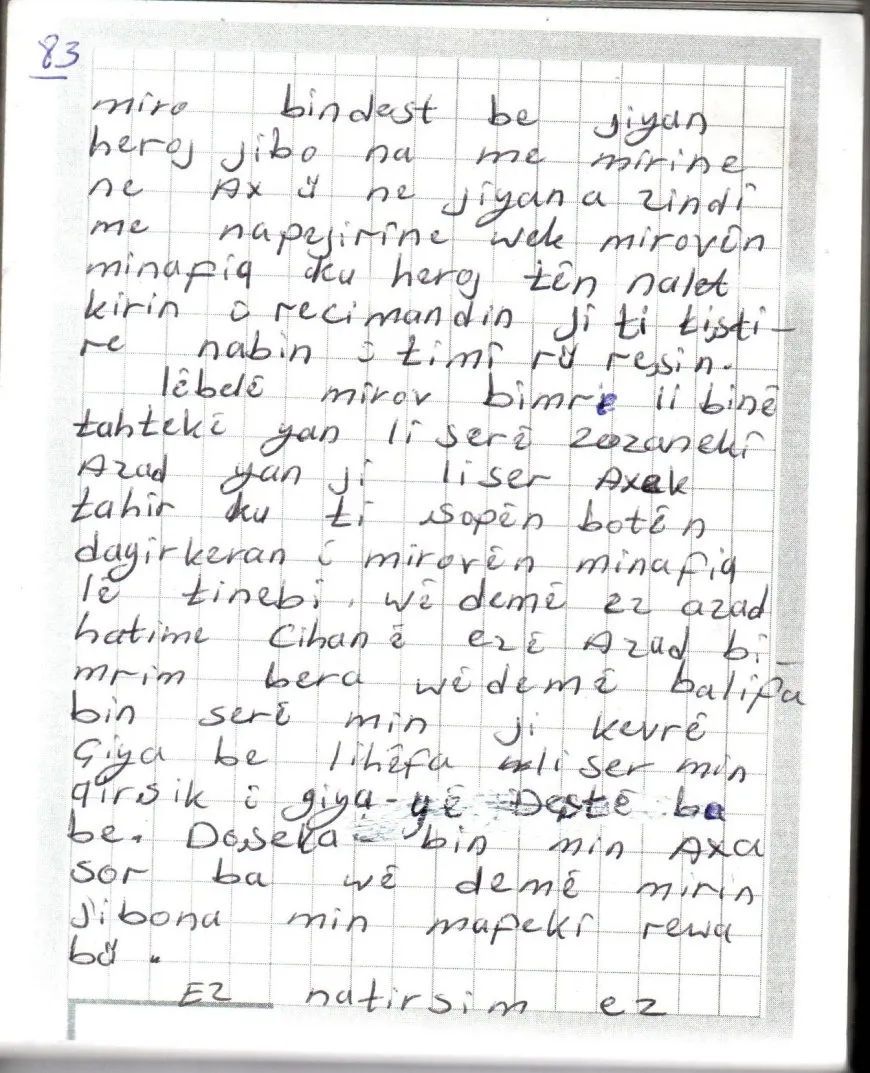 83
miro bindest be jiyan
heroj jibo na me mirine
ne Ax ü ne jiyana zindî
me napejirîne wek mirovên
minafiq ku heroj tên nalet
kirin û recimandin ji ti tişti-
re nabin û timî rü reşin.
lêbelê mirov bimre li binê
tahtekê yan li serê zozanekî
Azad yan ji li ser Axek
tahir ku ti şopên botên
dagirkeran û mirovên minafiq
lê tinebî, wê demê ez azad
hatime cihanê ezê Azad bi-
mrim bera wê demê balifa
bin serê min ji kevrê
Çiya be lihêfa li ser min
qirsik û giya-yê Deştê ba
be. Doşeka bin min Axa
sor ba wê demê mirin
jibona min mafekî rewa
bü.
Ez natirsim ez